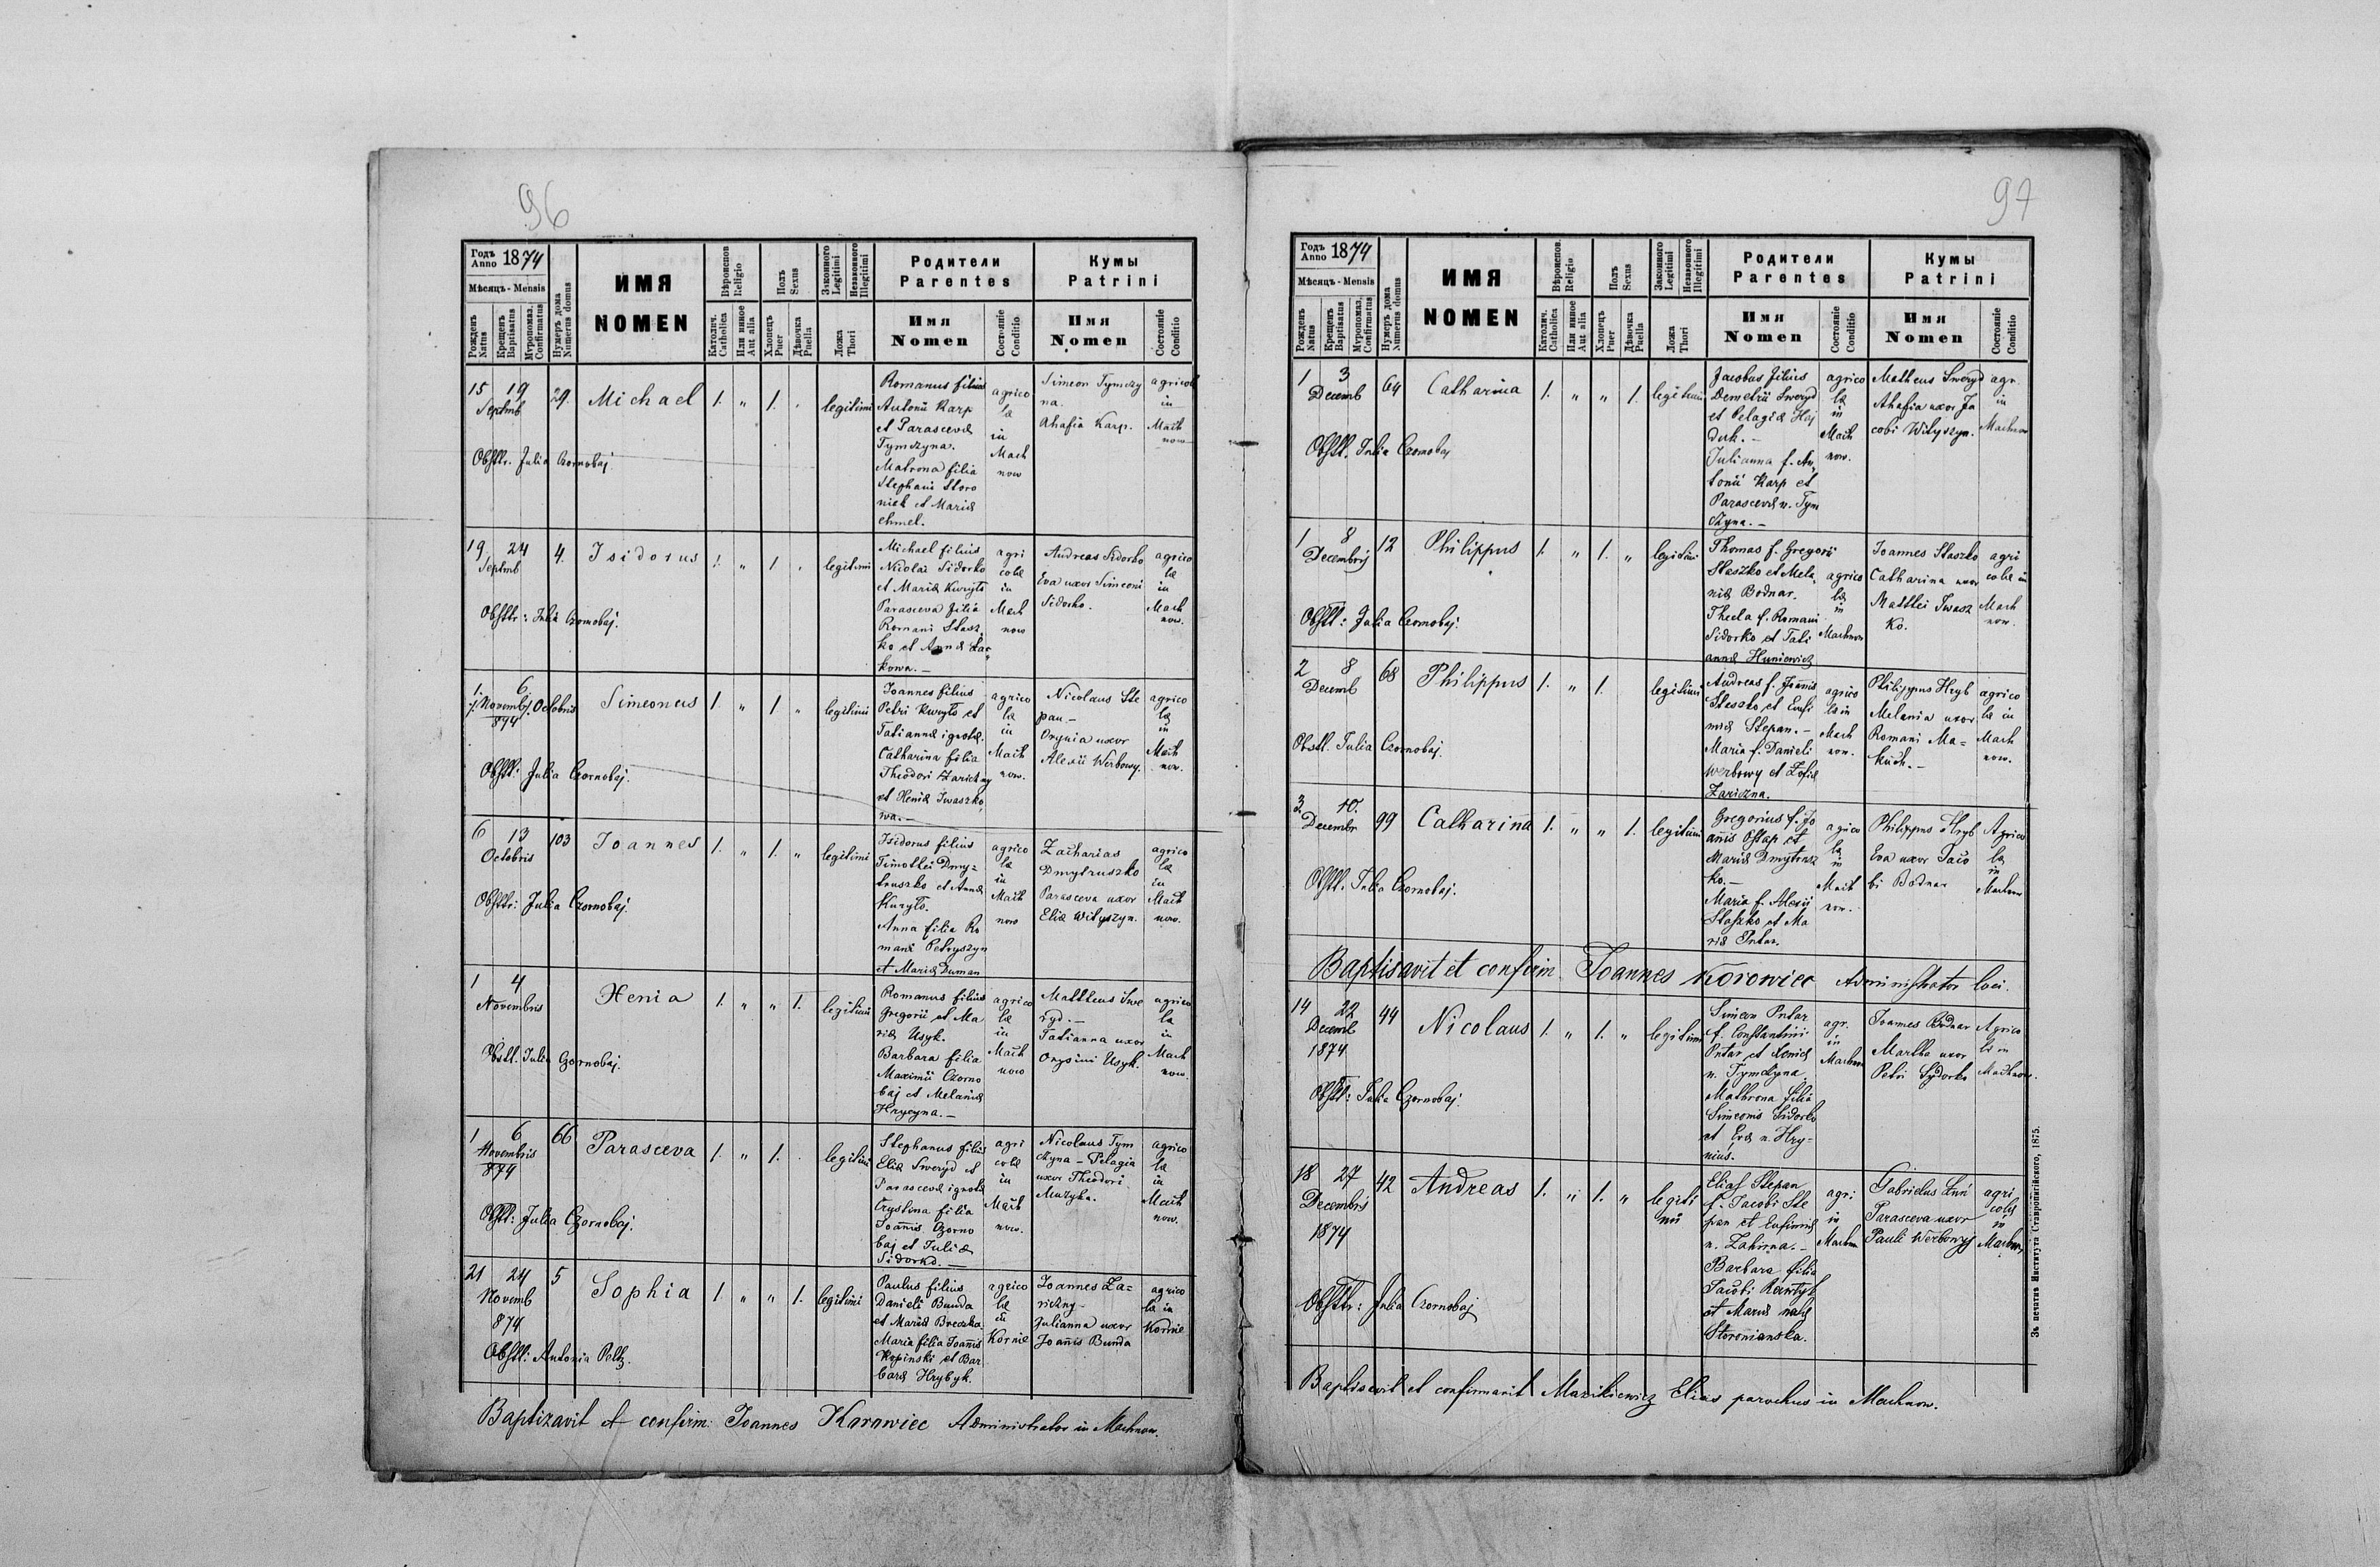 96
Годъ Anno 1874
Мѣсяцъ - Mensis
Рожденъ Natus
Крещенъ Baptisatus
Мѵропомаз. Confirmatus
Нумеръ дома Numerus domus
ИМЯ
NOMEN
Вѣроиспов. Religio
Католич. Catholica
Или иное Aut alia
Полъ Sexus
Хлопецъ Puer
Дѣвочка Puella
Законного Legitimi
Незаконного Illegitimi
Ложа Thori
Родители
Parentes
Имя
Nomen
Состояніе Conditio
Кумы
Patrini
Имя
Nomen
Состояніе Conditio
15 19
Septmb
29.
Michael
1. " 1.
legitimi
Romanus filius
Antonii Karp
et Parascevæ
Tymczyna.
Matrona filia
Stephani Storo
niek et Mariæ
Chmel.
agrico
læ
in
Mach
now
Simeon Tymczy
na.
Ahafia Karp.
agricolæ
in
Mach
now
Obsttr. Julia Czornobaj
19 24
Septmb
4.
Isidorus
1. " 1
legitimi
Michael filius
Nicolai Sidorko
et Mariæ Kuryło
Parasceva filia
Romani Stasz
ko et Annæ
kowa.
agri
colæ
in
Mach
now
Andreas Sidorko
Eva uxor Simeoni
Sidorko.
agrico
læ
in
Mach
now.
Obsttr: Julia Czornobaj.
1. 6.
Novemb. Octobris
874
Simeoneus
1. " 1 "
legitimi
Joannes filius
Petri Kuryło et
Tatiannæ ignotæ.
Catharina filia
Theodori Zariczny
et Heniæ Iwaszko
wa.
agrico
læ
in
Mach
now.
Nicolaus Ste
pan.
Orynia uxor
Alexii Werbowy.
agrico
læ
in
Mach
now.
Obstt: Julia Czornobaj.
6 13
Octobris
103
Joannes
1. " 1. "
legitimi
Isidorus filius
Timothei Dmy=
truszko et Annæ
Kuryło.
Anna filia Ro
mani Petryszyn
et Mariæ Duman
agrico
læ
in
Mach
now
Zacharias
Dmytruszko
Parasceva uxor
Eliæ Wityszyn.
agrico
læ
in
Mach
now.
Obsttr: Julia Czornobaj.
1 4
Novembris
Xenia
1. " " 1.
legitimi
Romanus filius
Gregorii et Ma
riæ Usyk.
Barbara filia
Maximii Czorno
baj et Melaniæ
Hrycyna.
agrico
læ
in
Mach
now
Mattheus Swe
ryd.
Tatianna uxor
Onysimi Usyk.
agrico
la
in
Mach
now.
Obstt. Julia Czornobaj.
1 6
Novembris
874
66
Parasceva
1. " 1.
legitimi
Stephanus filius
Eliæ Sweryd et
Parascevæ ignotæ
Crystina filia
Joannis Czorno
baj et Juliæ
Sidorko.
agri
colæ
in
Mach
now.
Nicolaus Tym
czyna - Pelagia
uxor Theodori
Muzyka.
agrico
læ
in
Mach
now.
Obstt: Julia Czornobaj.
21 24
Novemb
874
5
Sophia
1. " " 1.
legitimi
Paulus filius
Danieli Bunda
et Mariæ Breczka.
Maria filia Joannis
Kopinski et Bar
baræ Hrybyk.
agrico
læ
in
Kornie
Joannes Za=
riczny
Julianna uxor
Joannis Bunda
agrico
læ in
Kornie
Obstt: Antonia Peltz.
Baptizavit et confirm: Joannes Karowiec Administrator in Machnow.
97
Годъ Anno 1874
Мѣсяцъ - Mensis
Рожденъ Natus
Крещенъ Baptisatus
Мѵропомаз. Confirmatus
Нумеръ дома Numerus domus
ИМЯ
NOMEN
Вѣроиспов. Religio
Католич. Catholica
Или иное Aut alia
Полъ Sexus
Хлопецъ Puer
Дѣвочка Puella
Законного Legitimi
Незаконного Illegitimi
Ложа Thori
Родители
Parentes
Имя
Nomen
Состояніе Conditio
Кумы
Patrini
Имя
Nomen
Состояніе Conditio
1 3
Decemb
64
Catharina
1. " " 1.
legitimi
Jacobus filius
Demetrii Sweryd
et Pelagiæ Haj
duk. -
Julianna f. An
tonii Karp et
Parascevæ n. Tym
czyna. -
agrico
læ
in
Mach
now.
Matheus Sweryd
Ahafia uxor Ja
cobi Wityszyn.
agr.
in
Machnow
Obstt. Julia Czornobaj
1 8
Decembrij
12
Philippus
1. " 1. "
legitimi
Thomas f. Gregorii
Staszko et Mela
niæ Bodnar.
Thecla f. Romani
Sidorko et Tati
annæ Huniewicz
agrico
læ
in
Machnow
Joannes Staszko
Catharina uxor
Matthei Iwasz
ko.
agri
colæ in
Mach
now.
Obstt: Julia Czornobaj.
2 8
Decemb
68
Philippus
1. " 1.
legitimi
Andreas f. Joannis
Staszko et Eufi
miæ Stepan. -
Maria f. Danieli
Werbowy et Zofiæ
Zariczna.
agrico
læ in
Mach
now.
Philippus Hryb
Melania uxor
Romani Ma=
kuch. -
agrico
læ in
Mach
now.
Obstt. Julia Czornobaj.
3 10.
Decembr
99
Catharina
1. " " 1.
legitimi
Gregorius f. Jo
annis Ostap et
Mariæ Dmytrusz
ko. -
Maria f. Alexij
Staszko et Ma
riæ Pntar.
agrico
læ
in
Mach
now.
Philippus Hryb
Eva uxor Jaco
bi Bodnar
Agrico
læ
in
Machnow
Obstt. Julia Czornobaj.
Baptisavit et confirm Joannes Korowiec Administrator loci.
14 22
Decemb
1874
44
Nicolaus
1. " 1. "
legitimi
Simeon Pntar
f. Constantini
Pntar et Xeniæ
n. Tymczyna
Mathrona filia
Simeonis Sidorko
et Evæ n. Hry=
nius.
agr.
in
Machnow
Joannes Bodnar
Martha uxor
Petri Sydorko
Agrico
læ in
Machnow.
Obstt: Julia Czornobaj.
18 27
Decembris
1874
42
Andreas
1. " 1. "
legiti
mi
Elias Stepan
f. Jacobi Ste
pan et Eufimiæ
n. Zahirna. -
Barbara filia
Jacobi
et Mariæ natæ
Storonianska.
agri
in
Machnow
Gabrielus
Parasceva uxor
Pauli Werbowyj
agri
colæ
in
Machnow
Obsttr: Julia Czornobaj
Baptisavit et confirmavit Mazikiewicz Elias parochus in Machnow.
Зъ печатнѣ Института Ставропигійского, 1875.